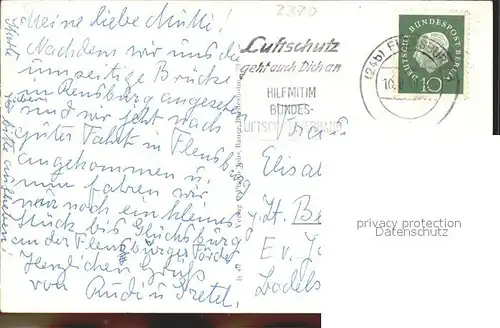 2370
Meine liebe Mutti!
Nachdem wir uns die
Brücke
in Rensburg angesehen
haben
und wir jetzt nach
guter Fahrt in Flensburg
angekommen u.
nun fahren wir
nur noch ein kleines
Stück bis Glücksburg
an der Flensburger Förde
Herzlichen Gruß
von Rudi u. Gretel.
Karte
bitte aufheben!
Luftschutz
geht auch Dich an
HILF MIT IM
BUNDES-
LUFTSCHUTZVERBAND
(24b) FLENSBURG
10
DEUTSCHE BUNDESPOST BERLIN
10
Frau
Elisa
z. Zt. B
Ev. J
privacy protection
Datenschutz